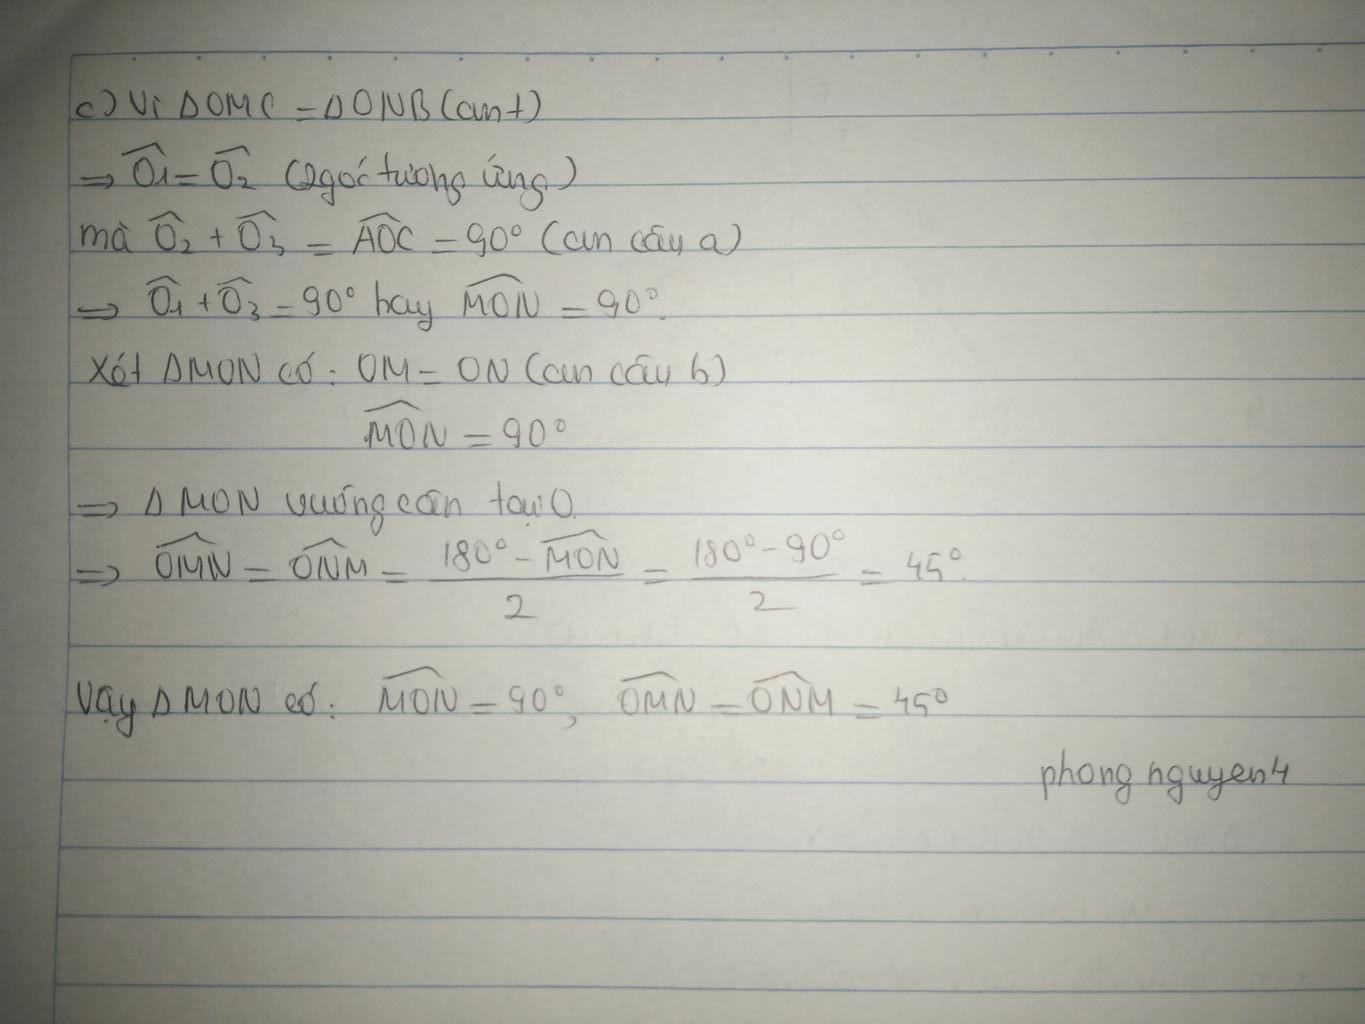 c) Vì ΔOMC = ΔONB (cmt)
⇒ Ô₁ = Ô₂ (2 góc tương ứng)
mà Ô₂ + Ô₃ = AÔC = 90° (cm câu a)
⇒ Ô₁ + Ô₃ = 90° hay MÔN = 90°.
Xét ΔMON có: OM = ON (cm câu b)
MÔN = 90°
⇒ ΔMON vuông cân tại O.
⇒ OM̂N = ON̂M = (180° - MÔN)/2 = (180° - 90°)/2 = 45°.
Vậy ΔMON có: MÔN = 90°, OM̂N = ON̂M = 45°
phong nguyen4